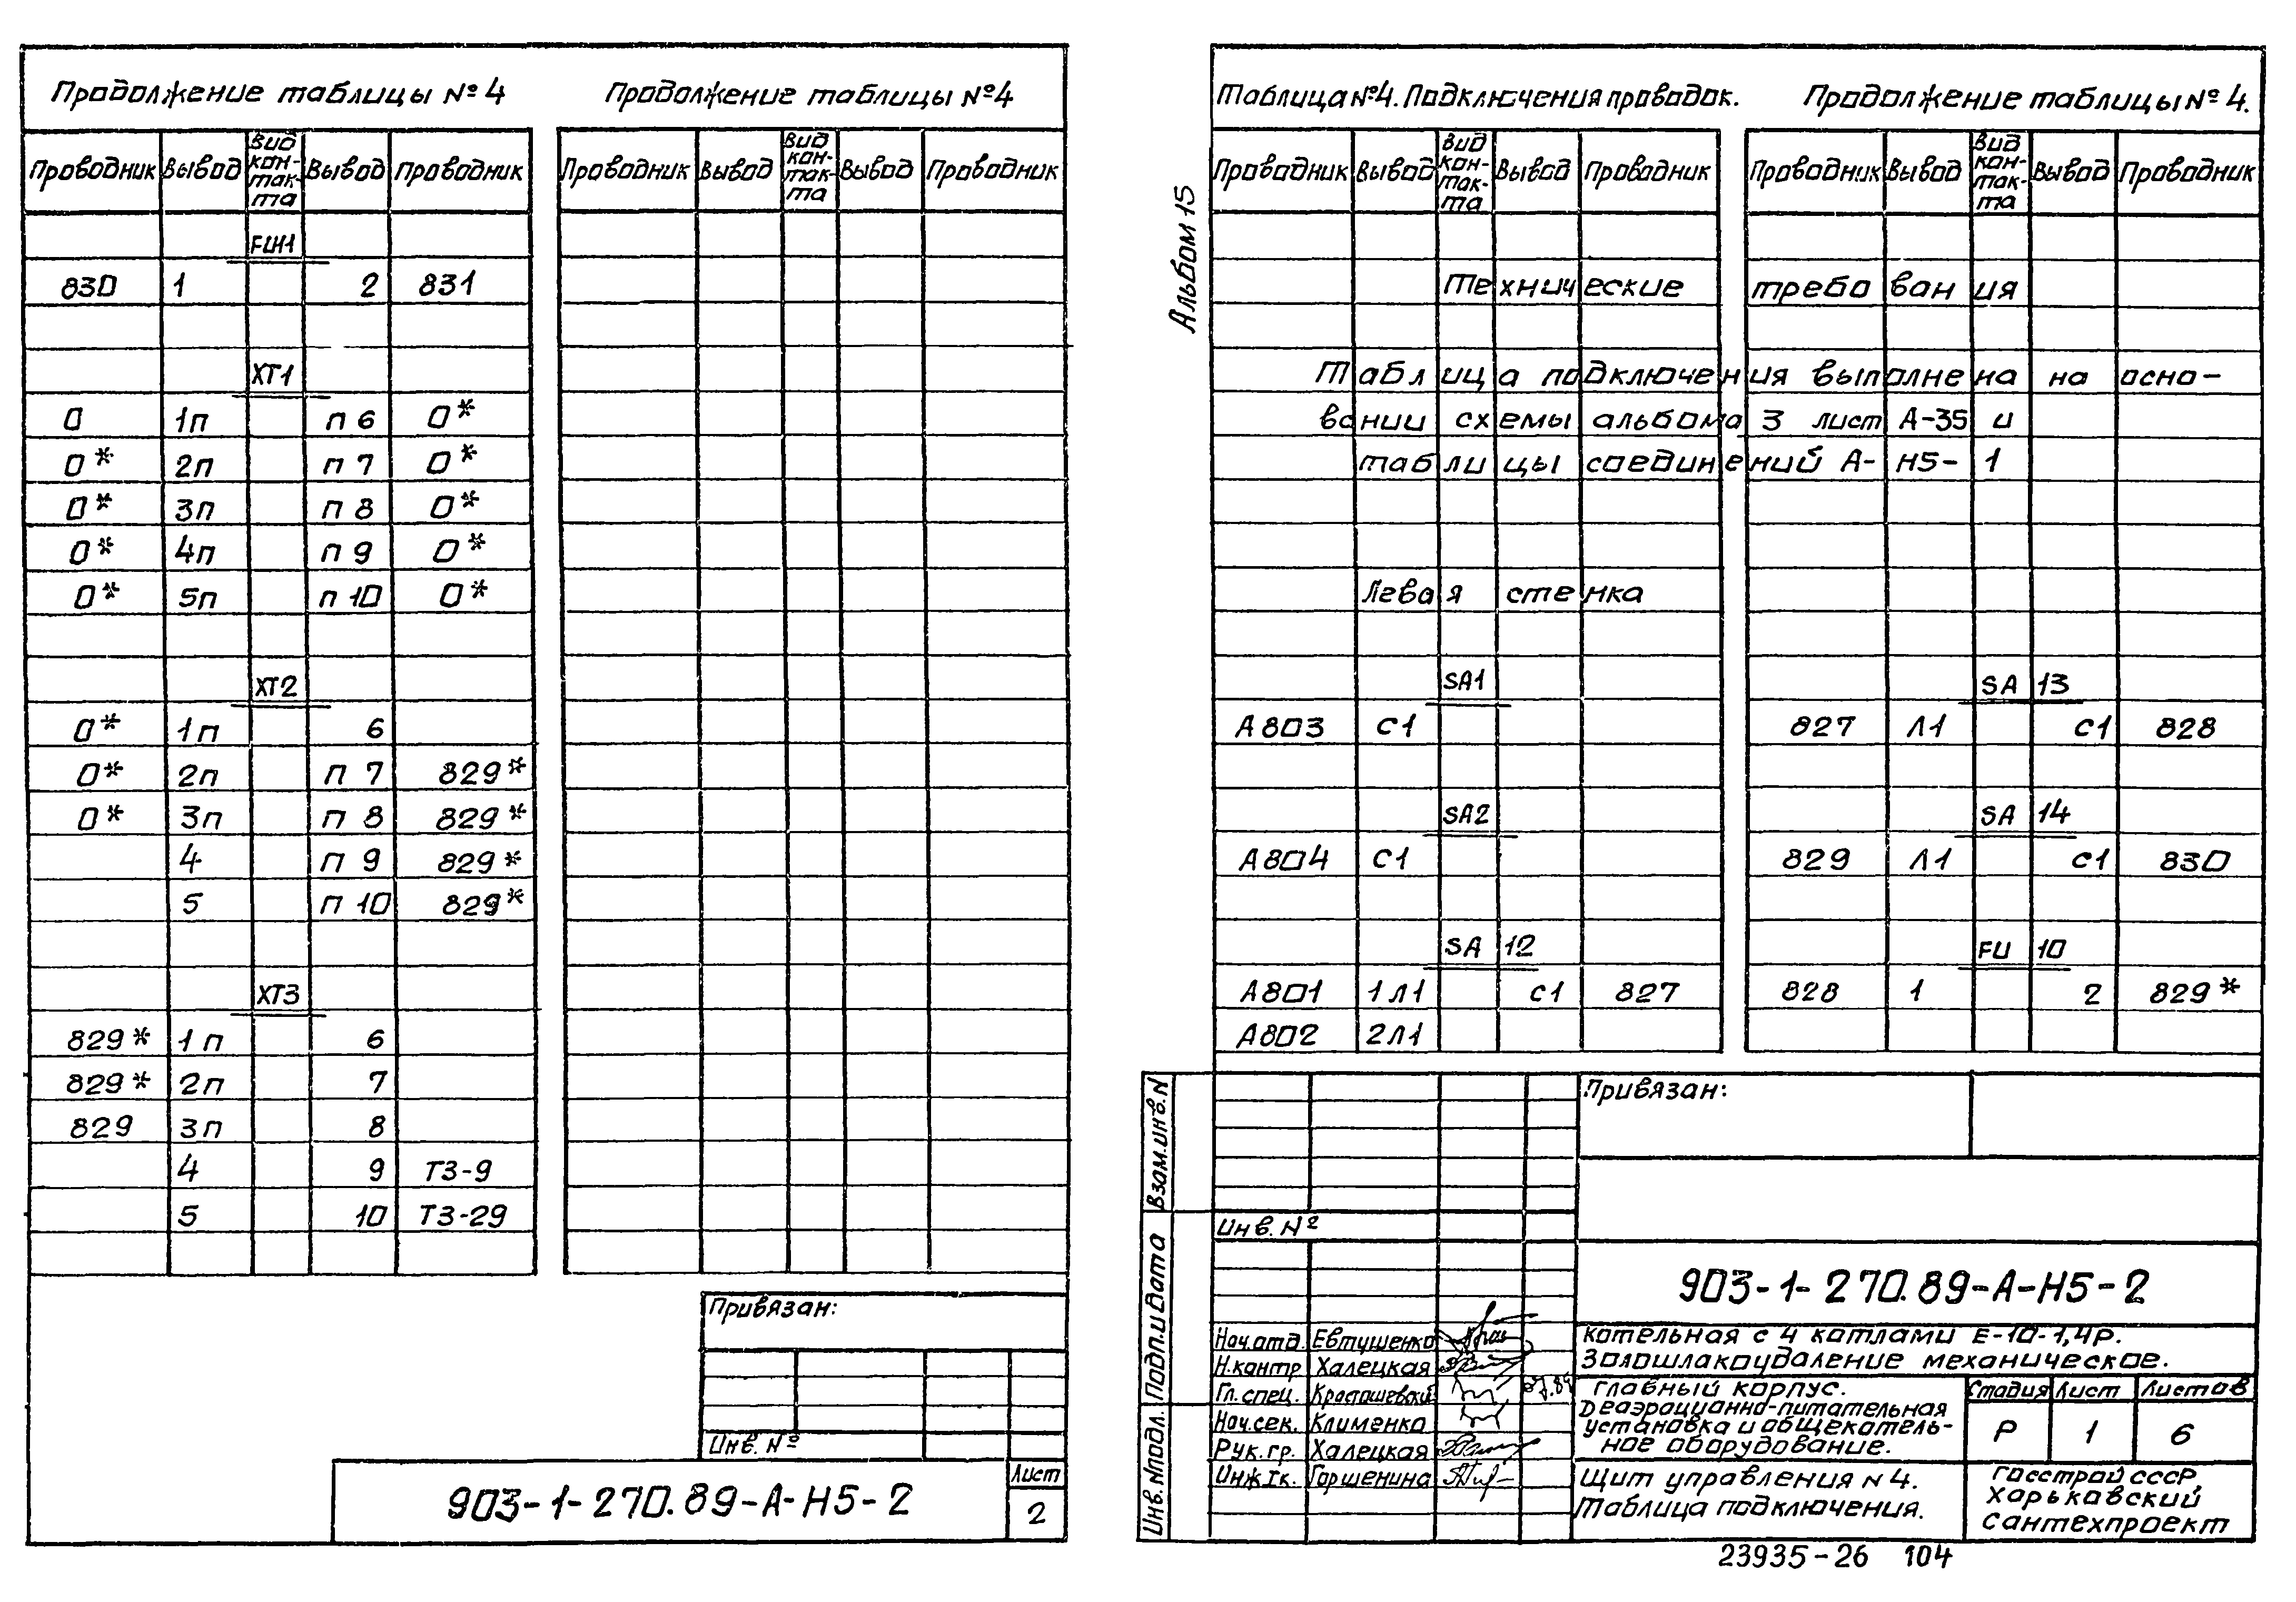 Продолжение таблицы №4
Проводник Вывод Вид кон-так-та Вывод Проводник
FU11
830 1 2 831
XT1
0 1п п 6 0*
0* 2п п 7 0*
0* 3п п 8 0*
0* 4п п 9 0*
0* 5п п 10 0*
XT2
0* 1п 6
0* 2п п 7 829*
0* 3п п 8 829*
4 п 9 829*
5 п 10 829*
XT3
829* 1п 6
829* 2п 7
829 3п 8
4 9 Т3-9
5 10 Т3-29
Продолжение таблицы №4
Проводник Вывод Вид кон-так-та Вывод Проводник
Привязан:
Инв. №
903-1-270.89-А-Н5-2
Лист
2
Альбом 15
Таблица №4. Подключения проводок.
Проводник Вывод Вид кон-так-та Вывод Проводник
Продолжение таблицы №4.
Проводник Вывод Вид кон-так-та Вывод Проводник
Технические требования
Таблица подключения выполнена на осно-
вании схемы альбома 3 лист А-35 и
таблицы соединений А-Н5-1
Левая стенка
SA1
А803 С1
SA2
А804 С1
SA 12
А801 1Л1 С1 827
А802 2Л1
SA 13
827 Л1 С1 828
SA 14
829 Л1 С1 830
FU 10
828 1 2 829*
Взам.инв.N
Подп.и дата
Инв.Nподл.
Привязан:
Инв. №
903-1-270.89-А-Н5-2
Нач.отд. Евтушенко
Н.контр Халецкая
Гл.спец.
Нач.сек. Клименко
Рук.гр. Халецкая
Инж.Iк. Горшенина
Котельная с 4 котлами Е-10-1,4Р.
Золошлакоудаление механическое.
Главный корпус.
Деаэрационно-питательная
установка и общекотель-
ное оборудование.
Стадия Лист Листов
Р 1 6
Щит управления N 4.
Таблица подключения.
Госстрой СССР,
Харьковский
Сантехпроект
23935-26 104